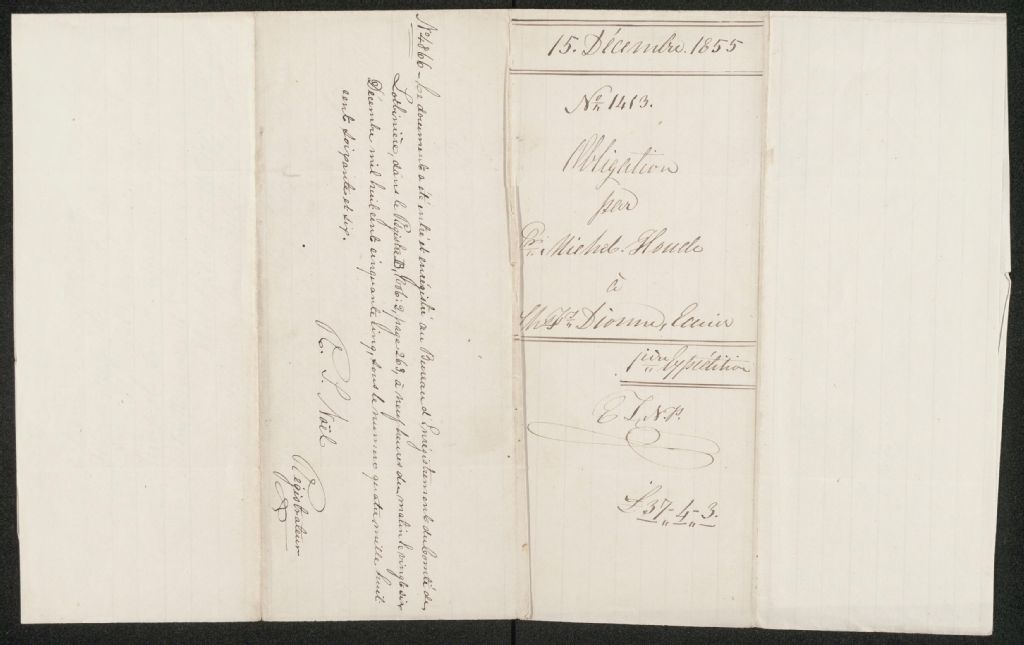 15. Décembre. 1855
No 1413.
Obligation
par
Michel Houde
à
Dionne, Ecuier
1ière Expédition
£37-4-3.
No 4866 - Ce document a été entré et enrégistré au Bureau d'Enregistrement du Comté de
Lotbinière, dans le Régistre B, Vol: 2, page 262, à neuf heures du matin le vingt six
Décembre mil huit cent cinquante cinq, sous le numéro quatre mille huit
cents soixante et six.
Noël
Régistrateur